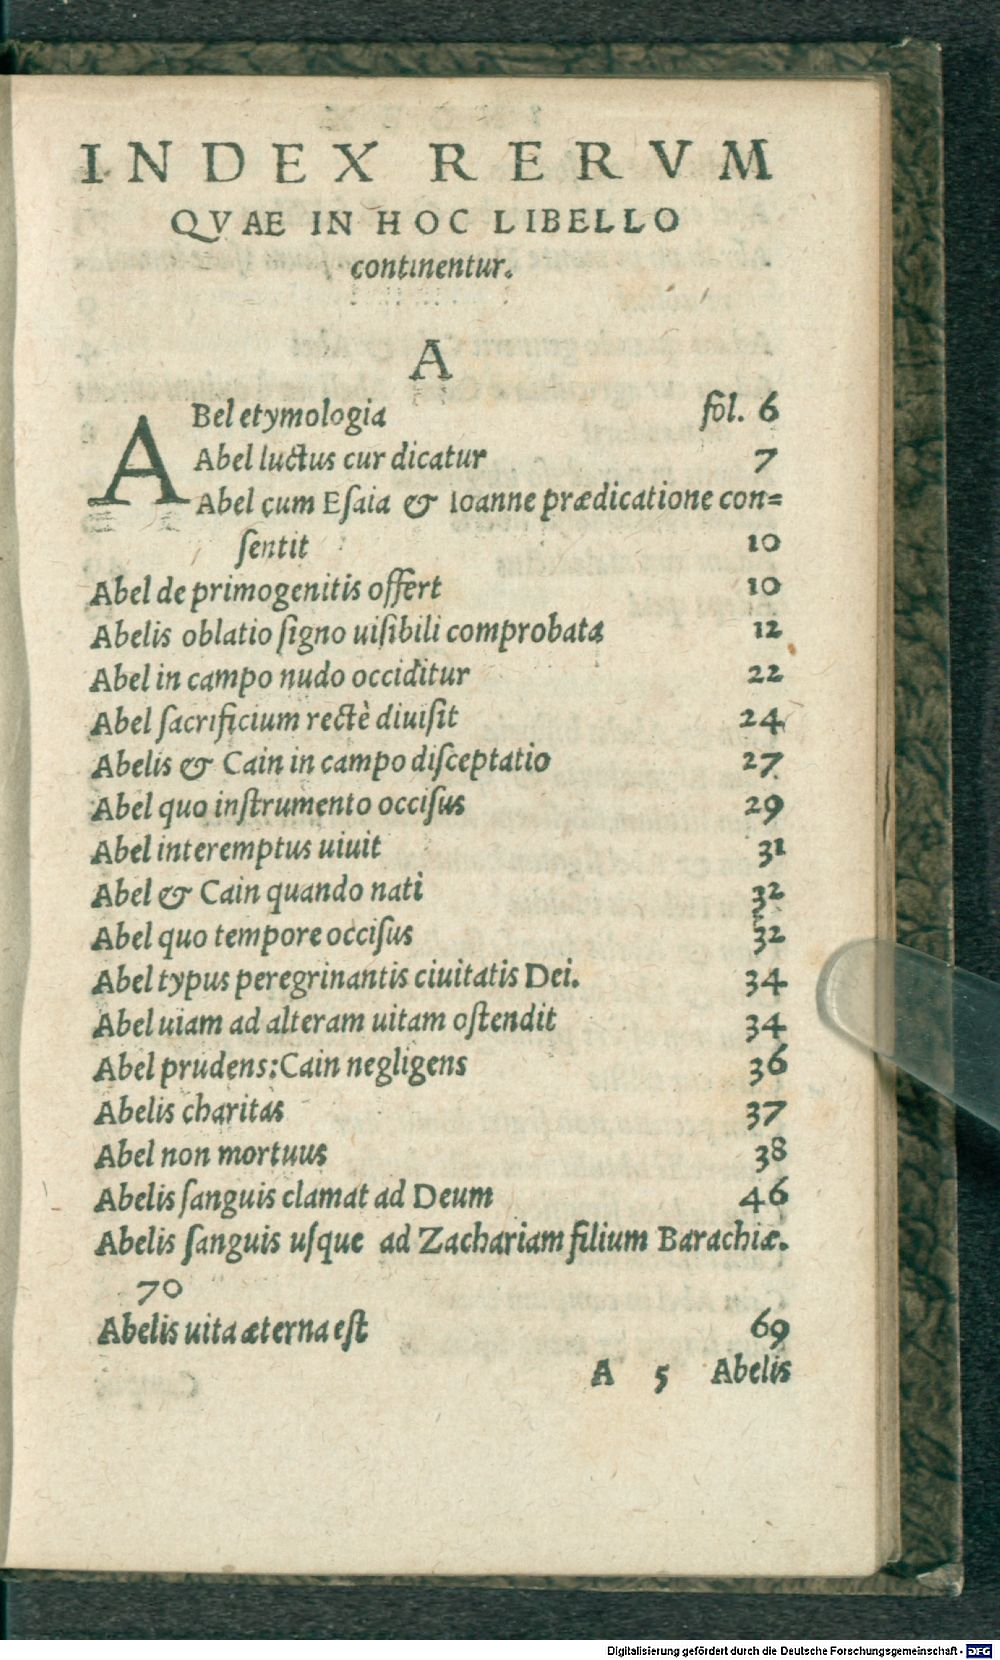 INDEX RERVM
QVAE IN HOC LIBELLO
continentur.
A
ABel etymologia fol. 6
Abel luctus cur dicatur 7
Abel cum Eſaia & Ioanne prædicatione con=
ſentit 10
Abel de primogenitis offert 10
Abelis oblatio ſigno uiſibili comprobata 12
Abel in campo nudo occiditur 22
Abel ſacrificium rectè diuiſit 24
Abelis & Cain in campo diſceptatio 27
Abel quo inſtrumento occiſus 29
Abel interemptus uiuit 31
Abel & Cain quando nati 32
Abel quo tempore occiſus 32
Abel typus peregrinantis ciuitatis Dei. 34
Abel uiam ad alteram uitam oſtendit 34
Abel prudens: Cain negligens 36
Abelis charitas 37
Abel non mortuus 38
Abelis ſanguis clamat ad Deum 46
Abelis ſanguis uſque ad Zachariam filium Barachiæ.
70
Abelis uita æterna eſt 69
A 5 Abelis
Digitalisierung gefördert durch die Deutsche Forschungsgemeinschaft - DFG